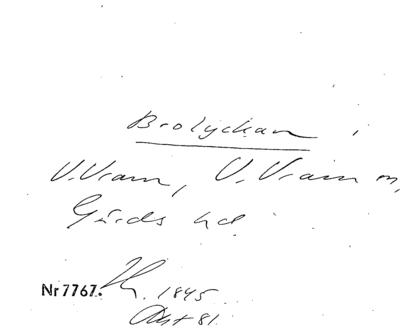 Brolyckan i
V. Vram, V. Vram sn,
Gärds hd.
Nr 7767. 1845